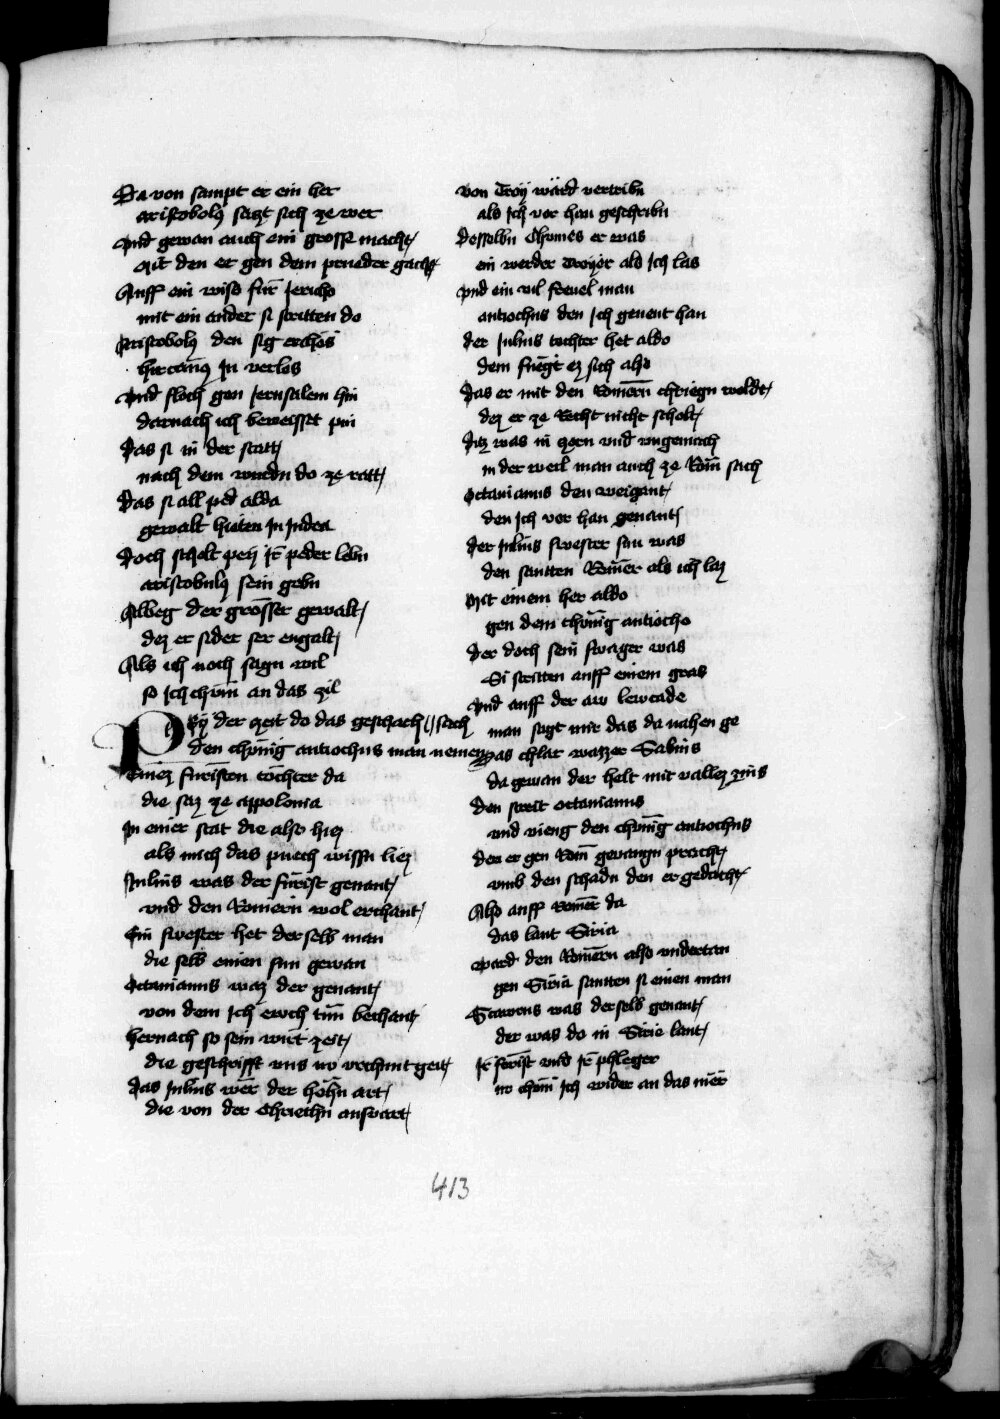 Da von sampt er ein her
aristobolꝰ saczt sich ze wer
Vnd gewan auch ein grosse macht
Mit den er gen dem prueder gacht
Auff ein wisen für Jericho
mit ein ander si stritten do
Aristobolꝰ den sig erchos
hircanꝰ Jn verlos
Vnd floch gen Jerusalem hin
darnach ich beweisset pin
Das si in der statt
nach dem wurdn do ze ratt
Das si all ped aldo
gewalt hieten Jn Judea
Doch scholt pey Jr peder lebn
aristobulꝰ sein gebn
Albeg der grosser gewalt
dez er sider ser engalt
Als ich noch sagn wil
so Jch chüm an das zil
Pey der zeit do das geschach sach
den chünig antiochus man nemen
Einez fürsten tochter da
die saz ze appolonia
Jn einer stat die also hiez
als mich das puech wissn liez
Julius was der fürst genant
vnd den Romern wol erchant
Ein swester het der selb man
die selb einen sun gewan
Octauianus waz der genant
von dem Jch ewch tun bechant
hernach so sein wirt zeit
die geschrifft vns vrchunt geit
Das Julius wer der höhn art
die von der Chriechn answart
von Troy ward vertribn
als Jch vor han geschribn
Desselbn Chomes er was
ein werder Troyer als Jch las
Vnd ein vil freuel man
antiochus den Jch genent han
Der Julius tochter het aldo
dem fuegt ez sich also
Das er mit den Romern chriegn woldt
dez er ze Recht nicht scholt
Ditz was in zorn vnd vngemach
in der weil man auch ze Rom sach
Octauianus den weigant
den Jch vor han genant
Der Julius swester sun was
den santten Romer als ich laz
Mit einem her aldo
gen dem chünig antiocho
Der doch sein swager was
Si stritten auff einem gras
Vnd auff der aw lewcade
man sagt mir das da nahen ge
Das chlar wazzer Sabins
da gewan der helt mit vallez zins
Den streit octauianus
vnd vieng den chünig antiochus
Den er gen Rom gevangn pracht
vmb den schadn den er gedacht
Also auff Romer da
das lant Siria
Ward den Romern also vndertan
gen Siria santten si einen man
Scaurus was der selb genant
der was do in Sirie lant
Jr fürst vnd Jr phleger
nv chüm Jch wider an das mer
413